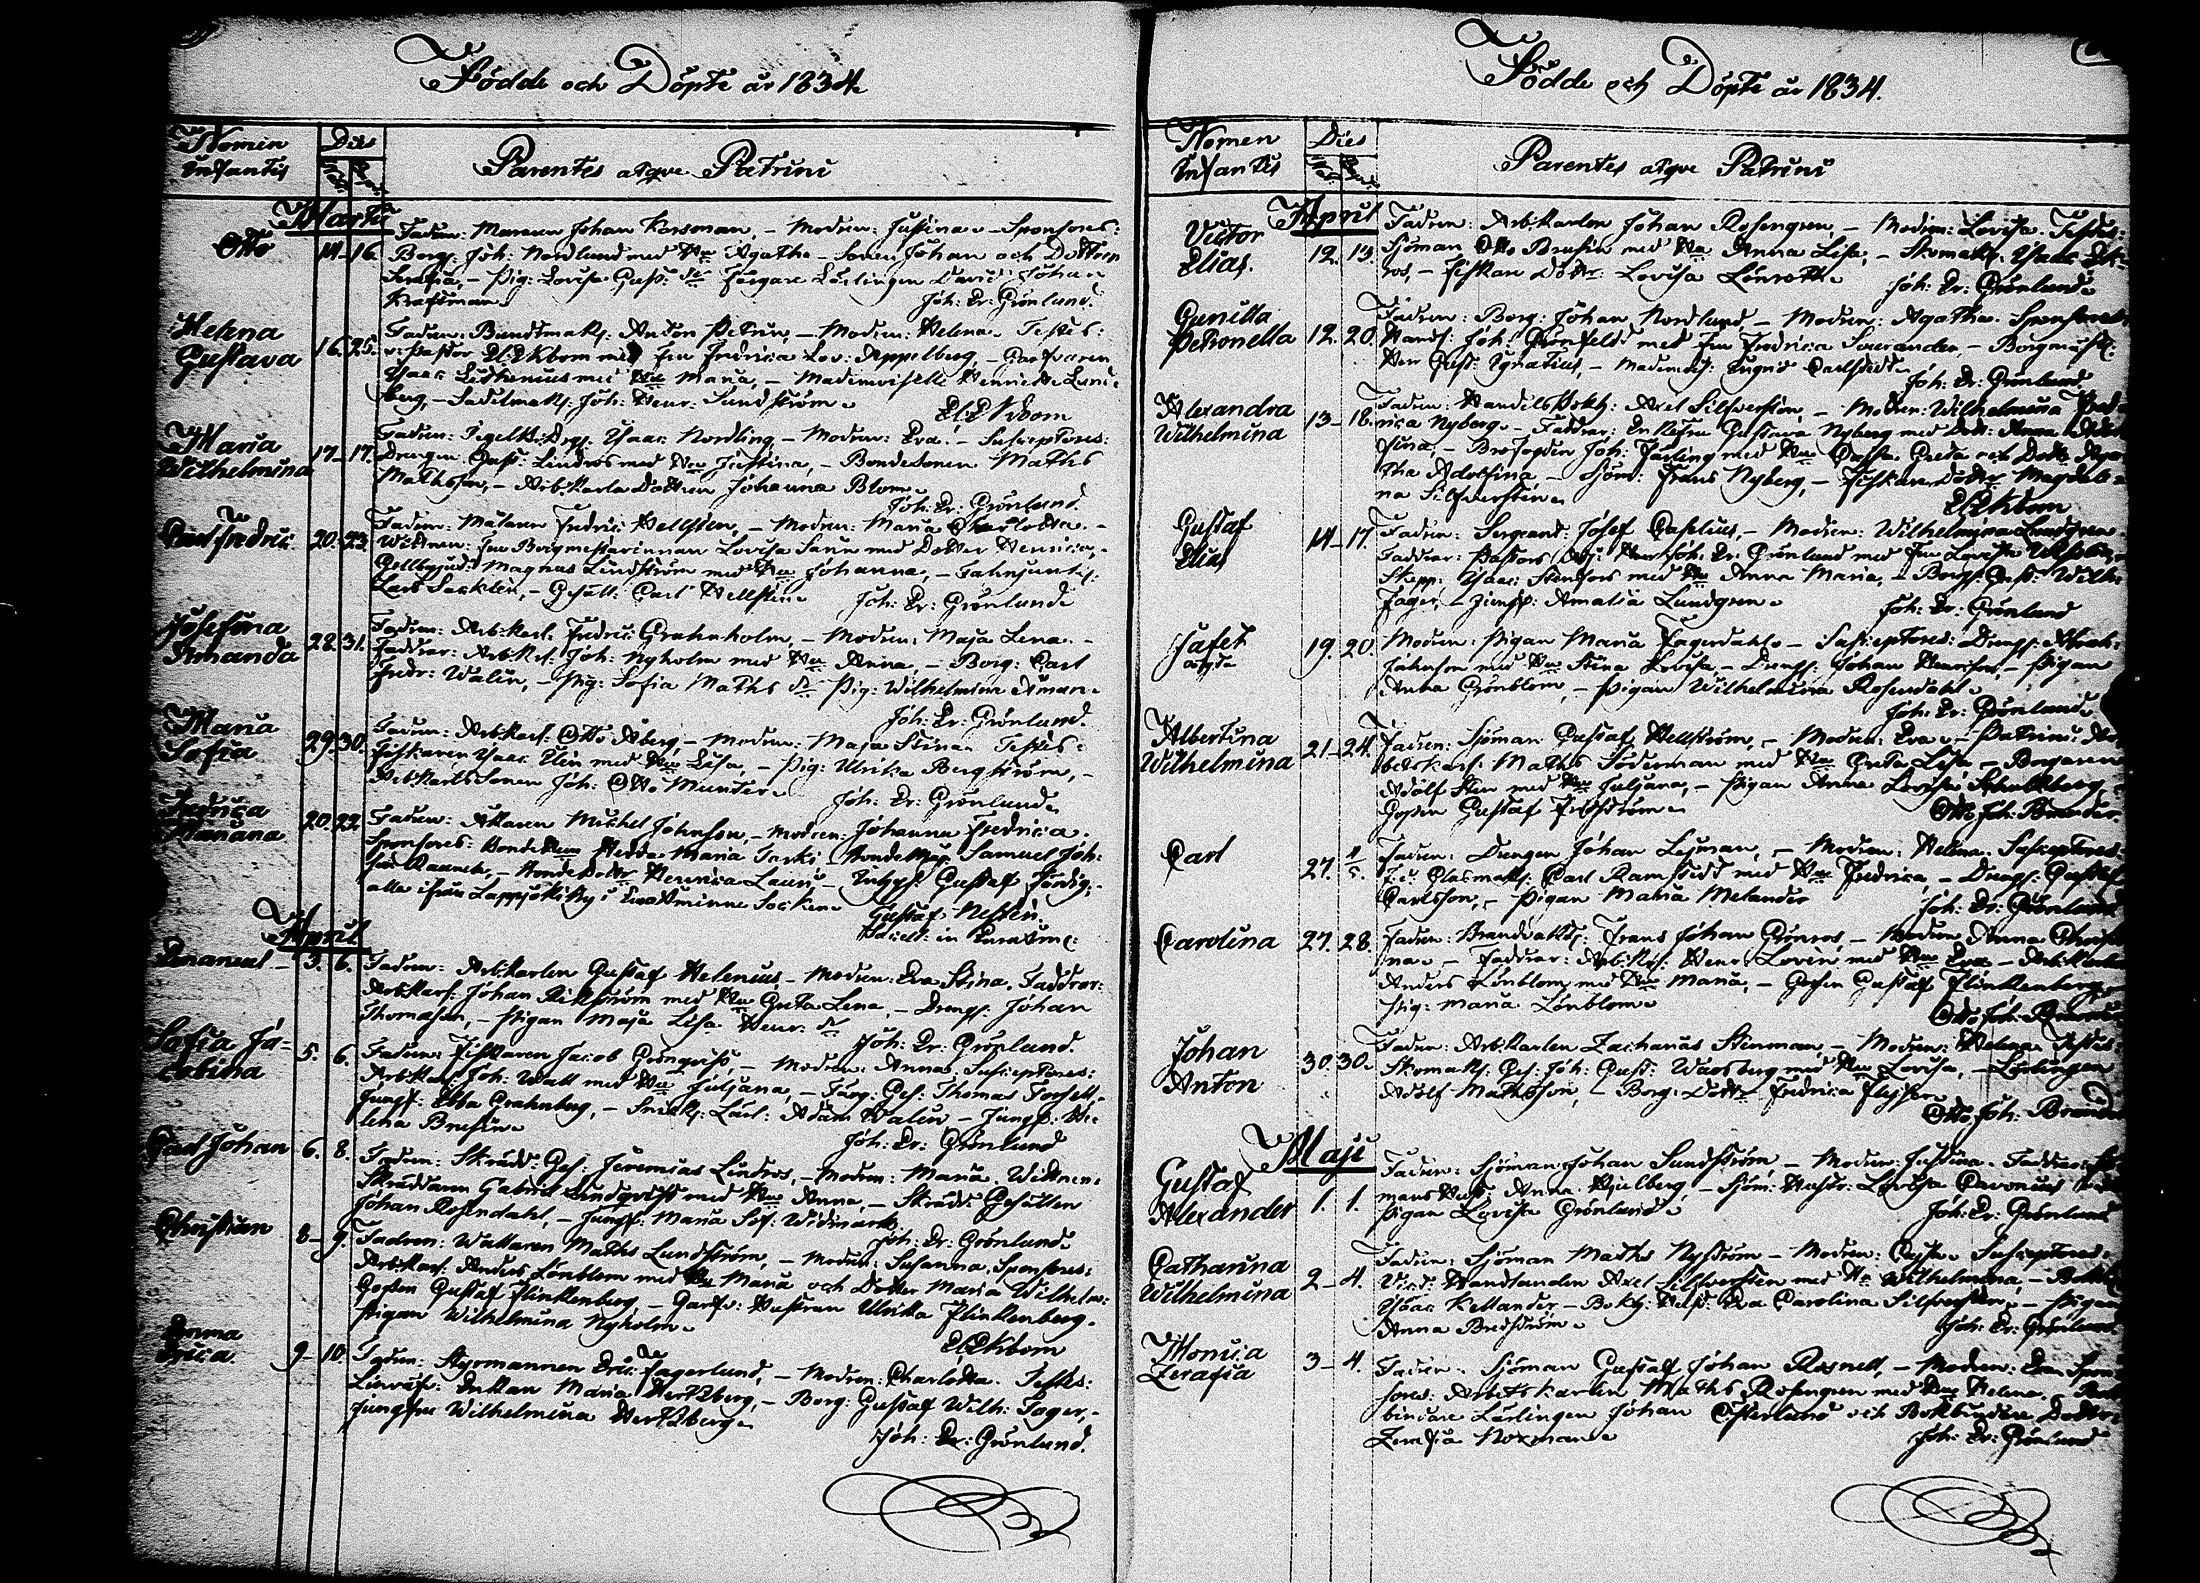 Födde och Döpte år 1834.
Nomen Infantis
Dies
Parentes atque Patrini
Martii
Otto
14-16.
Fadren: Johan Korsman, - Modren: Justina - Sponsores:
Borg: Joh: Nordlund med Hu Agatha - Sonen Johan och Dottren
Serafia, - Pig: Lovisa Gust: dr Färgare Lärlingen David Johan
Kraftman.
Joh: Er: Grönlund.
Helena Gustava
16. 25.
Fadren: Anton Petrin, - Modren: Helena. Testes:
v: Pastor El: Ekbom med Fru Fredrica Lov: Appelberg, - Garfvaren
Isaac Lithenius med Hu Maria, - Mademoiselle Henriette Lund-
berg, - Sadelmak: Joh: Henr: Sundström.
El: Ekbom
Maria Wilhelmina
17-17.
Fadren: Isaac Nordling, - Modren: Eva. - Susceptores:
Drengen Gust: Lindros med Hu Justina, - Bondesonen Maths
Mathsson, - Arb:karls Dottren Johanna Blom.
Joh: Er: Grönlund.
Carl Fredric
20. 23.
Fadren: Målaren Fredric Hellsten, - Modren: Maria Charlotta. -
Wittnen: Fru Borgmästarinnan Lovisa med Dotter Henrica, -
Magnus Lindström med Hu Johanna, -
Lars Sacklen, - Gesäll: Carl Hellsten.
Joh: Er: Grönlund
Josefina Amanda
28. 31.
Fadren: Arb:karl: Fredric Grahnholm, - Modren: Maja Lena. -
Faddrar: Arb:kl: Joh: Nyholm med Hu Anna, - Borg: Carl
Fredr: Walin, - Pig: Sofia Maths dr Pig: Wilhelmina Åman.
Joh: Er: Grönlund.
Maria Sofia
29. 30.
Fadren: Arb:karl: Otto Åberg, - Modren: Maja Stina. Testes:
Fiskaren Isaac Elin med Hu Lisa, - Pig: Ulrika Bergström, -
Arb:karls Sonen Joh: Otto Munter.
Joh: Er: Grönlund.
Fredrica Mariana
20. 22.
Fadren: Michel Johnsson, - Modren: Johanna Fredrica.
Sponsores: Hedda Maria Samuel Joh:
Henrica Lauri - Gustaf
alla ifrån Lappjökisby i Euraåminne Socken.
Gustaf
in Euraåm:
April
Emanuel
3. 6.
Fadren: Arb:karlen Gustaf Helenius, - Modren: Eva Stina. Faddrar:
Arb:karl: Johan Rikström med Hu Greta Lena, - Dreng: Johan
Thomasson, - Pigan Maja Lisa Henr: dr
Joh: Er: Grönlund.
Sofia Jacobina
5. 6.
Fadren: Fiskaren Jacob Grönqvist, - Modren: Anna. Susceptores:
Arb:karl: Joh: Wall med Hu Juljana, - Färg: Ges: Thomas Forsell, -
Jungf: Ebba Grahnberg, - Snick: Lärl: Adam Walin - Jungf: He-
lena Brusin.
Joh: Er: Grönlund
Carl Johan
6. 8.
Fadren: Skrädd: Ges: Jeremias Lindros, - Modren: Maria. Wittnen:
Skräddaren Gabriel Lindqvist med Hu Anna, - Skrädd: Gesällen
Johan Rosendahl, - Jungf: Maria Sof: Widmark.
Joh: Er: Grönlund.
Christian
8-9.
Fadren: Maths Lundström, - Modren: Susanna. Sponsores:
Arb:karl: Anders Lönblom med Hu Maria och Dotter Maria Wilhelm:
Gossen Gustaf Flinkenberg, - Garfv: Hustrun Ulrika Flinkenberg,
Pigan Wilhelmina Nyholm.
El: Ekbom
Emma Erica.
9-10.
Fadren: Styrmannen Eric Fagerlund, - Modren: Charlotta. Testes:
Enkan Maria Hertzberg, - Borg: Gustaf Wilh: Fager, -
Jungfru Wilhelmina Hertzberg.
Joh: Er: Grönlund.
Födde och Döpte år 1834.
Nomen Infantis
Dies
Parentes atque Patrini
April
Victor Elias.
12. 13.
Fadren: Arb:karlen Johan Rosengren, - Modren: Lovisa. Testes:
Sjöman Otto Brusin med Hu Anna Lisa, - Skomak: Isaac Ek-
ros, - Fiskare Dottr: Lovisa Lönroth.
Joh: Er: Grönlund.
Gunilla Petronella
12. 20.
Fadren: Borg: Johan Nordlund, - Modren: Agatha. Sponsores:
Hand: Joh: Grönfeldt med Fru Fredrica Sourander, - Borgmäst:
Herr Gust: Ignatius, - Mademois: Ingrid Carlstedt.
Joh: Er: Grönlund.
Alexandra Wilhelmina
13-18.
Fadren: Handels Bokh: Axel Silfversten, - Modren: Wilhelmina Fred-
rica Nyberg. - Faddrar: Enkefru Gustava Nyberg med Dott: Anna
Joh: Farling med Hu Greta och Dottr
Adolfina, - Sjöm: Frans Nyberg, - Fiskare Dottr Magdale-
na Silfversten.
El: Ekbom
Gustaf Elias
14-17.
Fadren: Sergeant: Josef Caselius, - Modren: Wilhelmina Lundgren.
Faddrar: Pastors Adj: Herr Joh: Er: Grönlund med Fru Lovisa
Skepp: Isaac Stenfors med Hu Anna Maria, - Borg: Gust: Wilh:
Fager, - Jungf: Amalia Lundgren.
Joh: Er: Grönlund
Jafet
19. 20.
Modren: Pigan Maria Fagerdahl. - Susceptores: Dreng: Abrah:
Johnsson med Hu Stina Lovisa - Dreng: Johan Henricsson, - Pigan
Anna Grönblom, - Pigan Wilhelmina Rosendahl.
Joh: Er: Grönlund.
Albertina Wilhelmina
21-24.
Fadren: Sjöman Gustaf Hellström, - Modren: Eva. - Patrini: Ar-
betskarl: Maths Söderman med Hu Greta Lisa - Borgaren
Adolf Sten med Hu Juljana, - Pigan Anna Lovisa
Gossen Gustaf
Otto Joh: Brander.
Carl
27. 4/5.
Fadren: Drengen Johan Lejman, - Modren: Helena. Susceptores:
Glasmak: Carl Ramstedt med Hu Fredrica, - Dreng: Gustaf
Carlsson, - Pigan Maria Melander
Joh: Er: Grönlund
Carolina
27. 28.
Fadren: Frans Johan Grönros, - Modren Anna Christi-
na. - Faddrar: Arb:kl: Henr: Loven med Hu Eva - Arb:karlen
Anders Lönblom med Hu Maria, - Gossen Gustaf Flinkenberg,
Pig: Maria Lönblom.
Otto Joh: Brander
Johan Anton
30. 30.
Fadren: Arb:karlen Zacharias Stenman, - Modren: Helena. Testes:
Skomak: Ges: Joh: Gust: Warsberg med Hu Lovisa, - Lärlingen
Adolf Mathsson, - Borg: Dottr Fredrica
Otto Joh: Brander
Maji
Gustaf Alexander
1. 1.
Fadren: Sjöman Johan Sundström, - Modren: Justina. Faddrar: Sjö-
mans Hust: Anna Hjulberg, - Sjöm: Hustr: Lovisa Cavonius
Pigan Lovisa Grönlund.
Joh: Er: Grönlund
Catharina Wilhelmina
2-4.
Fadren: Sjöman Maths Nyström - Modren: Cajsa. Susceptores:
Handlanden Axel Silfversten med Hu Wilhelmina, -
Isaac Kellander - Bokh: Eva Carolina Silfversten, - Pigan
Anna Bredström.
Joh: Er: Grönlund
Monica Zerafia
3-4.
Fadren: Sjöman Gustaf Johan Rosnell, - Modren: Eva. Spon-
sores: Arbetskarlen Maths Rosengren med Hu Helena, - Bok-
bindare Lärlingen Johan Österlund och Bokbindare Dottr:
Zerafia Norman.
Joh: Er: Grönlund